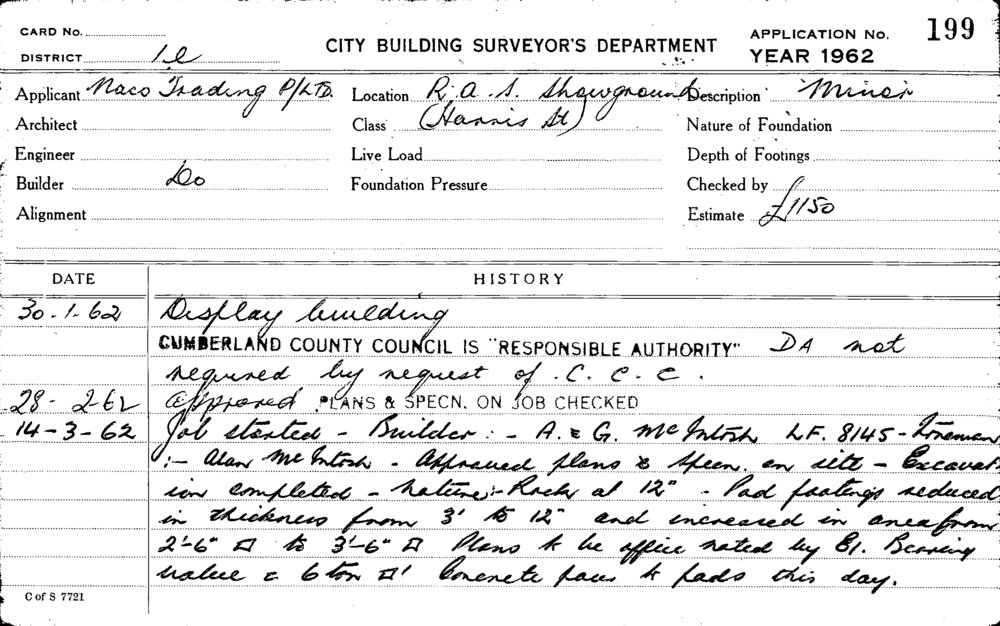 CARD No.
CITY BUILDING SURVEYOR'S DEPARTMENT
APPLICATION No. 199
DISTRICT
YEAR 1962
Applicant Naco Trading P/LTD.
Location R.A.S. Showground
Description Minor
Architect
Class (Harris St)
Nature of Foundation
Engineer
Live Load
Depth of Footings
Builder Do
Foundation Pressure
Checked by
Alignment
Estimate £1150
DATE
HISTORY
30-1-62 Display building
CUMBERLAND COUNTY COUNCIL IS "RESPONSIBLE AUTHORITY" DA not
required by request of C.C.C.
28-2-62 Approved PLANS & SPECN. ON JOB CHECKED
14-3-62 Job started - Builder :- A. & G. McIntosh LF. 8145 - Foreman
:- Alan McIntosh - Approved plans & specn. on site - Excavat
ion completed - nature :- Rock at 12" - Pad footings reduced
in thickness from 3' to 12" and increased in area from
2'-6" □ to 3'-6" □ Plans to be office noted by BI. Bearing
value = 6 ton □' Concrete pour to pads this day.
C of S 7721